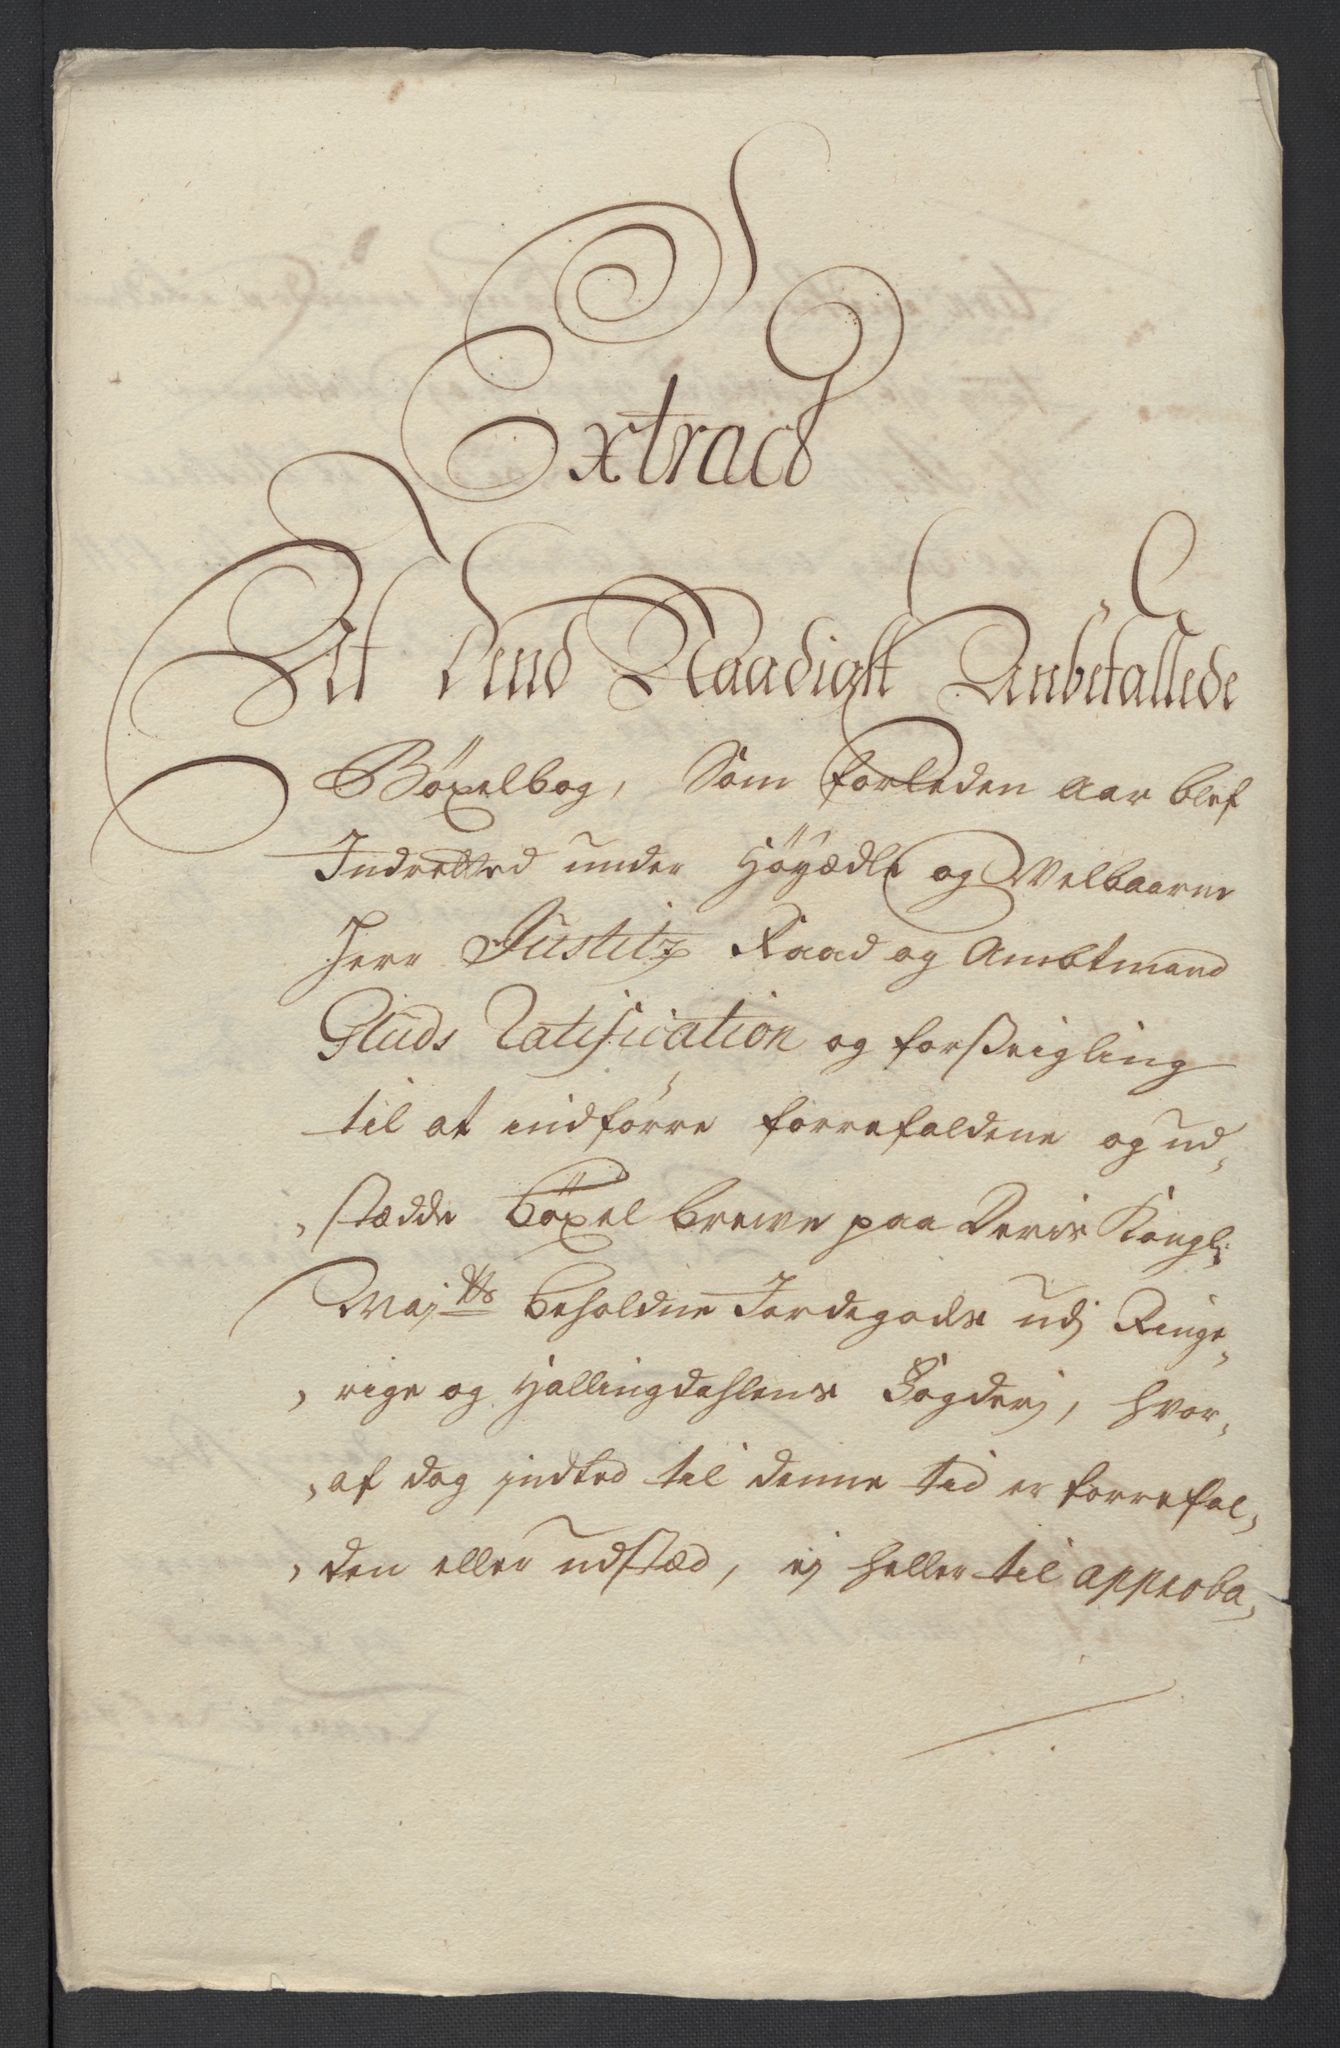 Extract
Af dend Naadigst Anbefallede
Böxelbog, Som forleden aar blef
Indretted under Höyædle og Welbaarne
Herr Justitz Raad og Ambtmand
Gluds Ratification og forseigling
til at indförre forrefaldene og ud„
„stædde böxel brewe paa Deris Kongl:
May:tts beholdne Jordegods udj Ringe„
„rige og Hallingdahlens Fogderj, hvor„
„af dog indted til denne tid er forrefal„
„den eller udstæd, ej heller til approba„